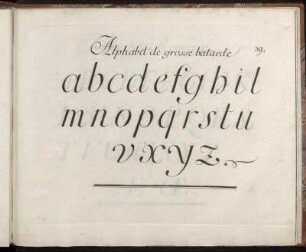 Alphabet de grosse batarde 29.
abcdefghil
mnopqrstu
vxyz